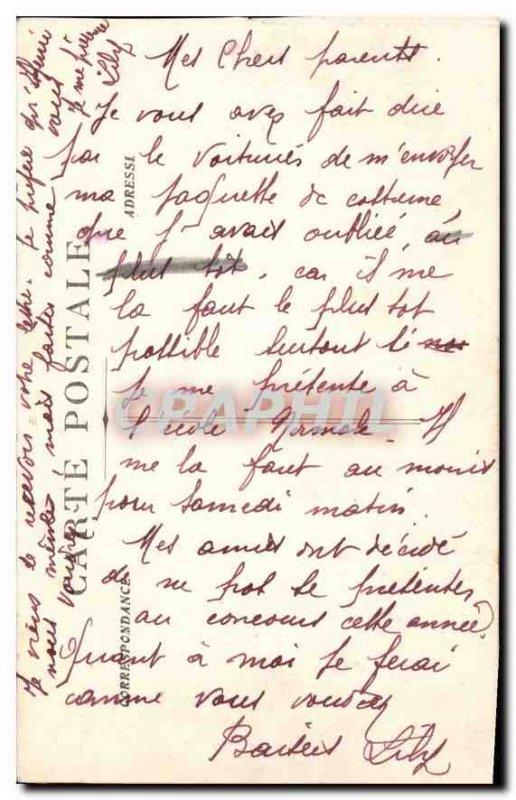 Mes Chers parents.
Je vous avez fait dire
par le voituriés de m'envoyer
ma jaquette de costume
que j' avait oubliée, au
plus tôt, car il me
la faut le plus tot
possible surtout si
je me présente à
l'école Normale. Il
me la faut au moins
pour samedi matin.
Mes amies ont décidé
de ne pas se présenter
au concours cette année
Quant à moi je ferai
comme vous voudrez
Baisers Lily
Je viens de recevoir votre lettre. Je préfère qu'Henri
nous mène! mais faites comme vous
voudrez!
je me presse
Lily
CARTE POSTALE
ADRESSE
CORRESPONDANCE
CPAPHIL